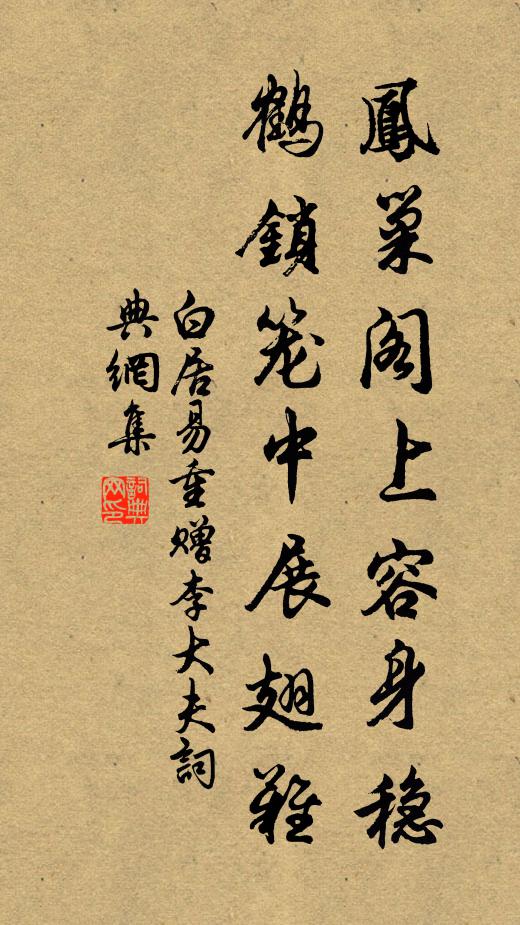 鳳巢閣上容身穩
鶴鎖笼中展翅難
白居易重赠李大夫詞
典網集
詞典網印